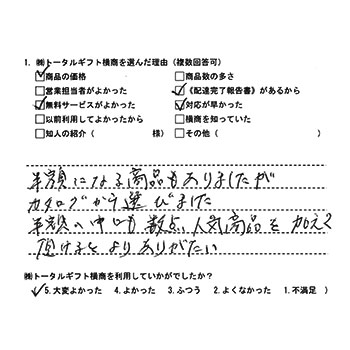 1. ㈱トータルギフト横商を選んだ理由（複数回答可）
☑商品の価格 □商品数の多さ
□営業担当者がよかった ☑《配達完了報告書》があるから
☑無料サービスがよかった ☑対応が早かった
□以前利用してよかったから □横商を知っていた
□知人の紹介（ 様） □その他（ ）
半額になる商品もありましたが
カタログから選びました
半額の中にも数点、人気商品を加えて
頂けるとよりありがたい
㈱トータルギフト横商を利用していかがでしたか？
（✓5.大変よかった 4.よかった 3.ふつう 2.よくなかった 1.不満足 ）